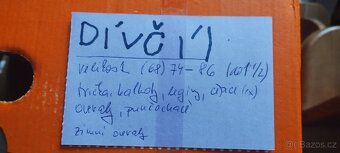 DÍVČÍ
velikosti (68) 74-86 (vel 1/2)
trička, kalhoty, leginy, čepice (1x)
overaly, punčocháče
zimní overaly
Bazos.cz